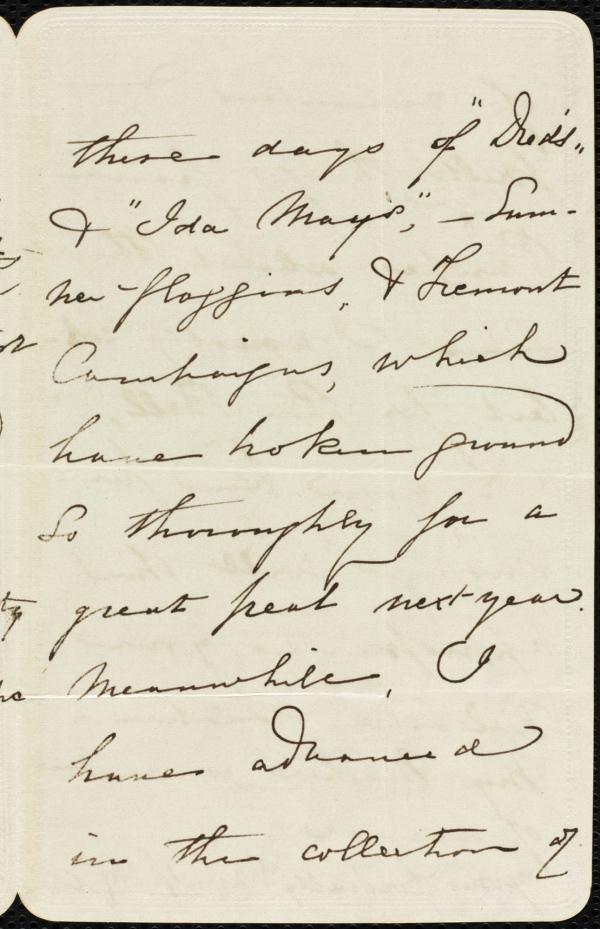 these days of "Dred's"
& "Ida Mays", – Sum-
ner-floggings, & Fremont
Campaigns, which
have broken ground
so thoroughly for a
great next year.
Meanwhile, I
have advanced
in the collection of